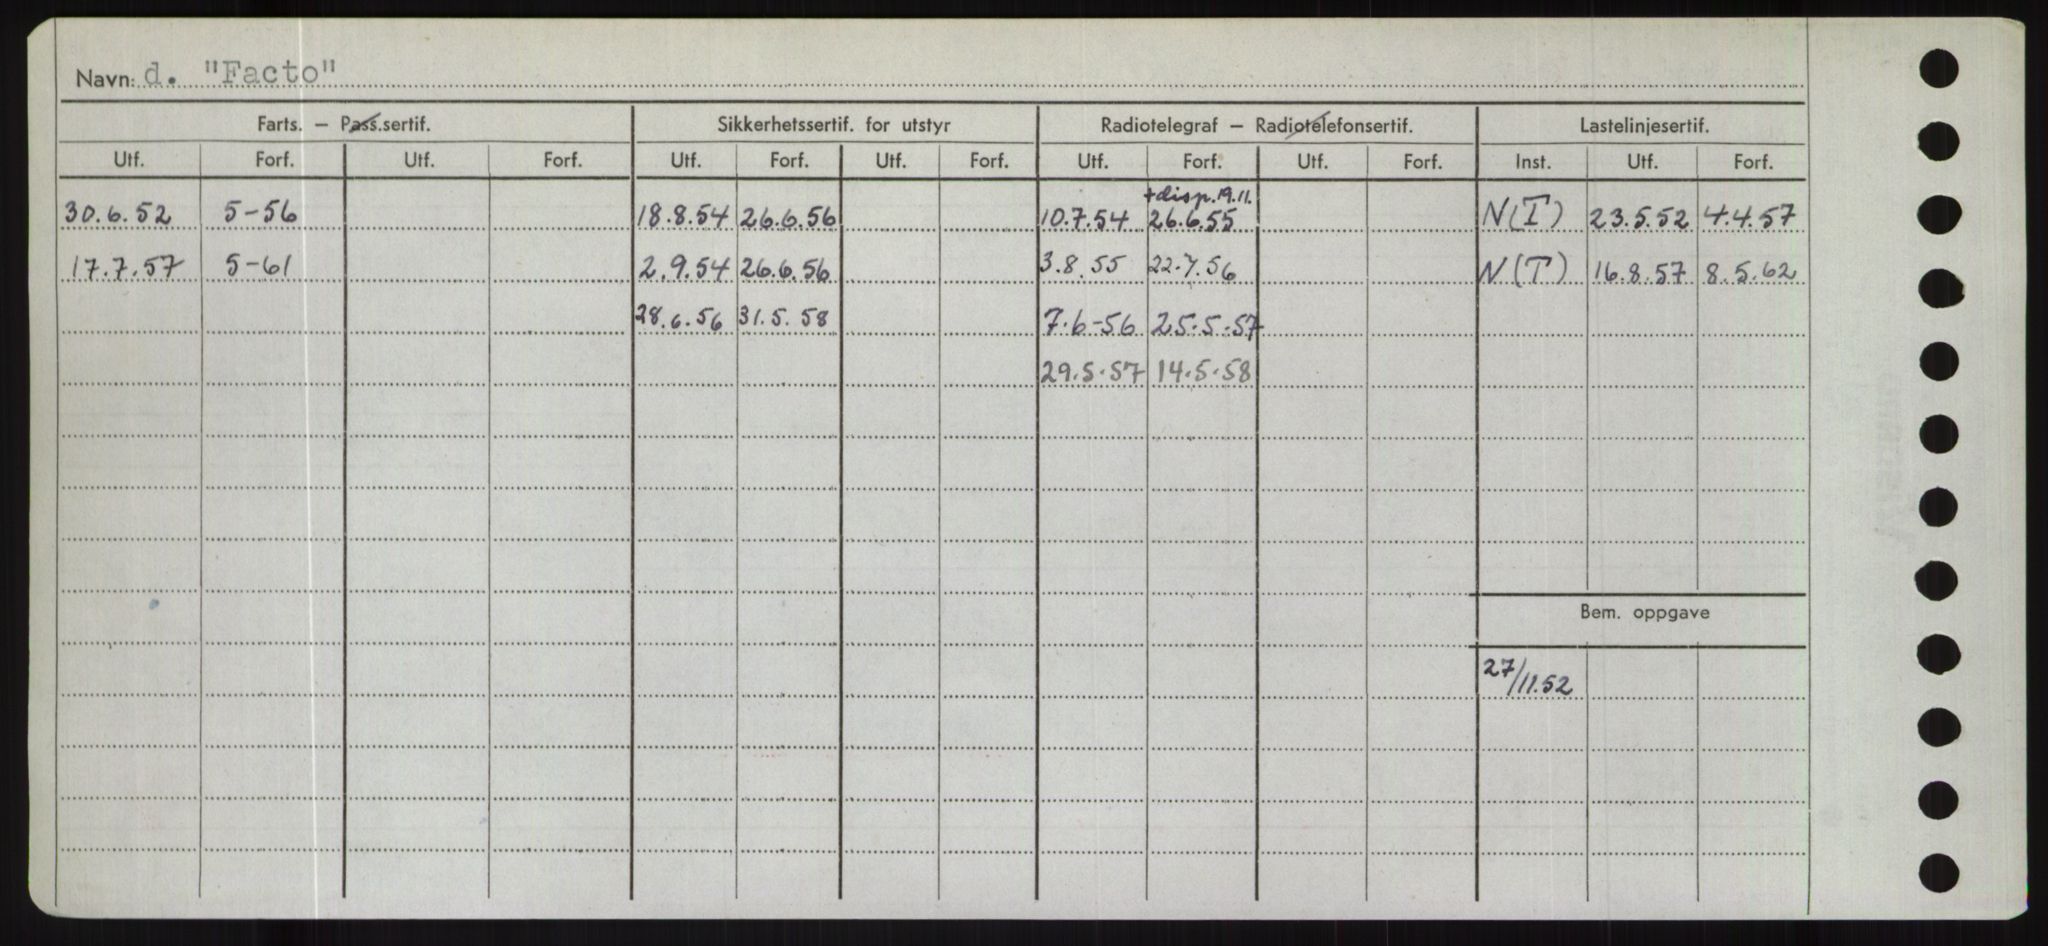 Navn: d. "Facto"
Farts. — Pass.sertif. Sikkerhetssertif. for utstyr Radiotelegraf — Radiotelefonsertif. Lastelinjesertif.
Utf. Forf. Utf. Forf. Utf. Forf. Utf. Forf. Utf. Forf. Utf. Forf. Inst. Utf. Forf.
+disp.19.11.
30.6.52 5-56 18.8.54 26.6.56 10.7.54 26.6.55 N(T) 23.5.52 4.4.57
17.7.57 5-61 2.9.54 26.6.56 3.8.55 22.7.56 N(T) 16.8.57 8.5.62
28.6.56 31.5.58 7.6-56 25.5.57
29.5.57 14.5.58
Bem. oppgave
27/11.52